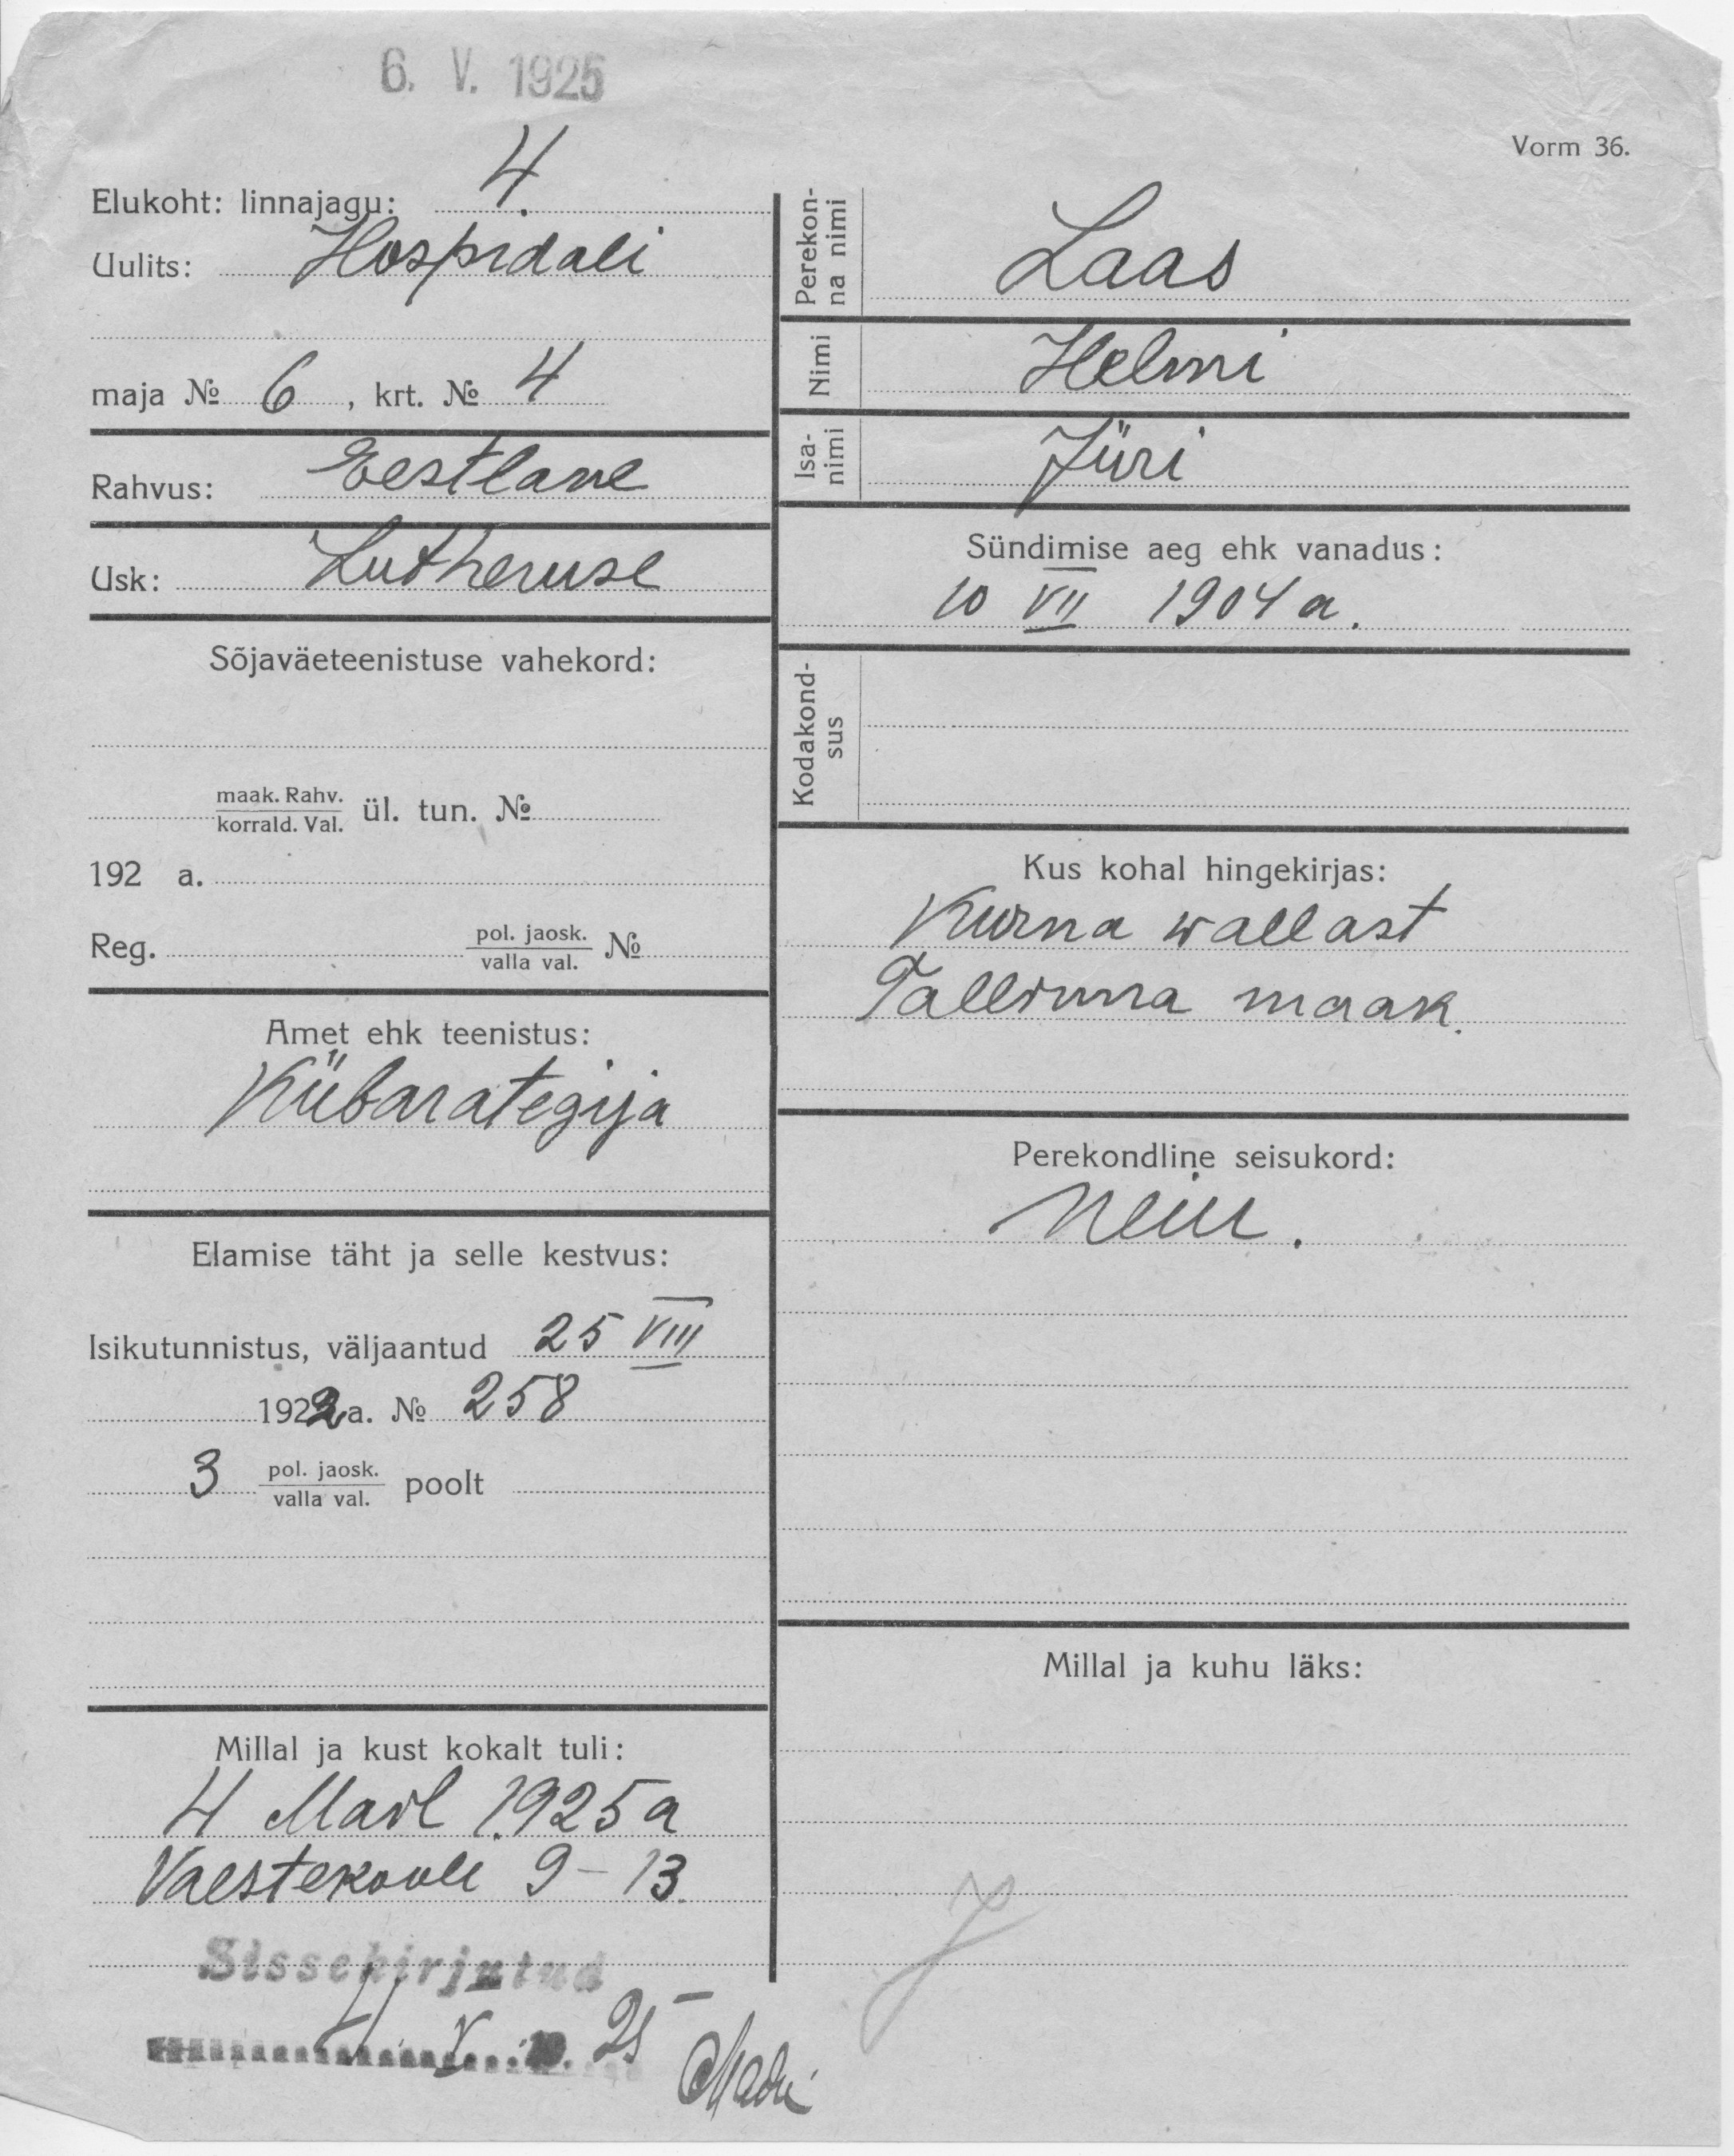 6. V. 1925
Vorm 36.
Elukoht: linnajagu: 4.
Uulits: Hospidali
maja № 6, krt. № 4
Rahvus: Eestlane
Usk: Lutheruse
Sõjaväeteenistuse vahekord:
maak. Rahv.
korrald. Val. ül. tun. №
192 a.
Reg. pol. jaosk.
valla val. №
Amet ehk teenistus:
Kübarategija
Elamise täht ja selle kestvus:
Isikutunnistus, väljaantud 25 VIII
1922 a. № 258
3 pol. jaosk.
valla val. poolt
Millal ja kust kokalt tuli:
4 Mail 1925 a
Vaestekooli 9-13.
Sissekirjutud
4 V 19. 25
Perekon-
na nimi
Laas
Nimi
Helmi
Isa-
nimi
Jüri
Sündimise aeg ehk vanadus:
10 VII 1904 a.
Kodakond-
sus
Kus kohal hingekirjas:
Kurna wallast
Tallinna maak.
Perekondline seisukord:
Neiu.
Millal ja kuhu läks: